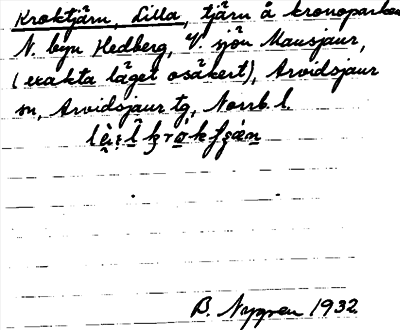 Kroktjärn, Lilla, tjärn å kronoparken
N. byn Hedberg, V. sjön Mausjaur,
(exakta läget osäkert), Arvidsjaur
sn, Arvidsjaur tg, Norrb. l.
B. Nygren 1932